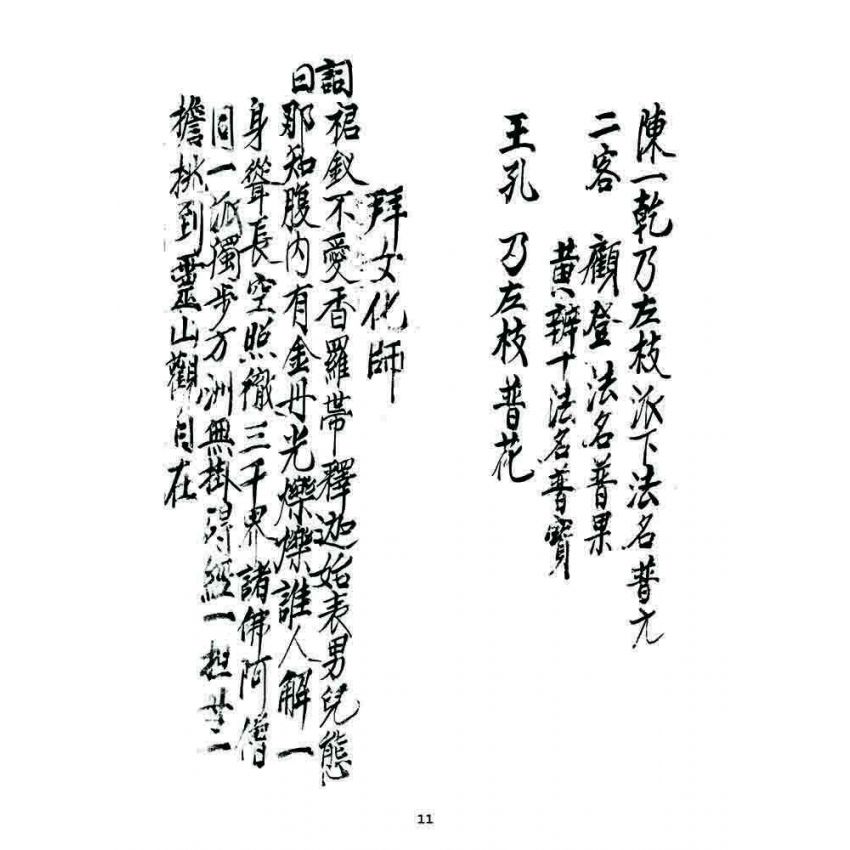 陳一乾乃左枝派下法名普亢
二客 顧登法名普果
黃辦十法名普寶
王孔 乃左枝普花
拜文化師
詞
曰
裙釵不愛香羅帶釋迦始表男兒態
那知腹內有金丹光爍爍誰人解一
身聳長空照徹三千界諸佛阿僧
同一派濁步万洲無掛碍經一担廿二
擔挑到靈山觀自在
11